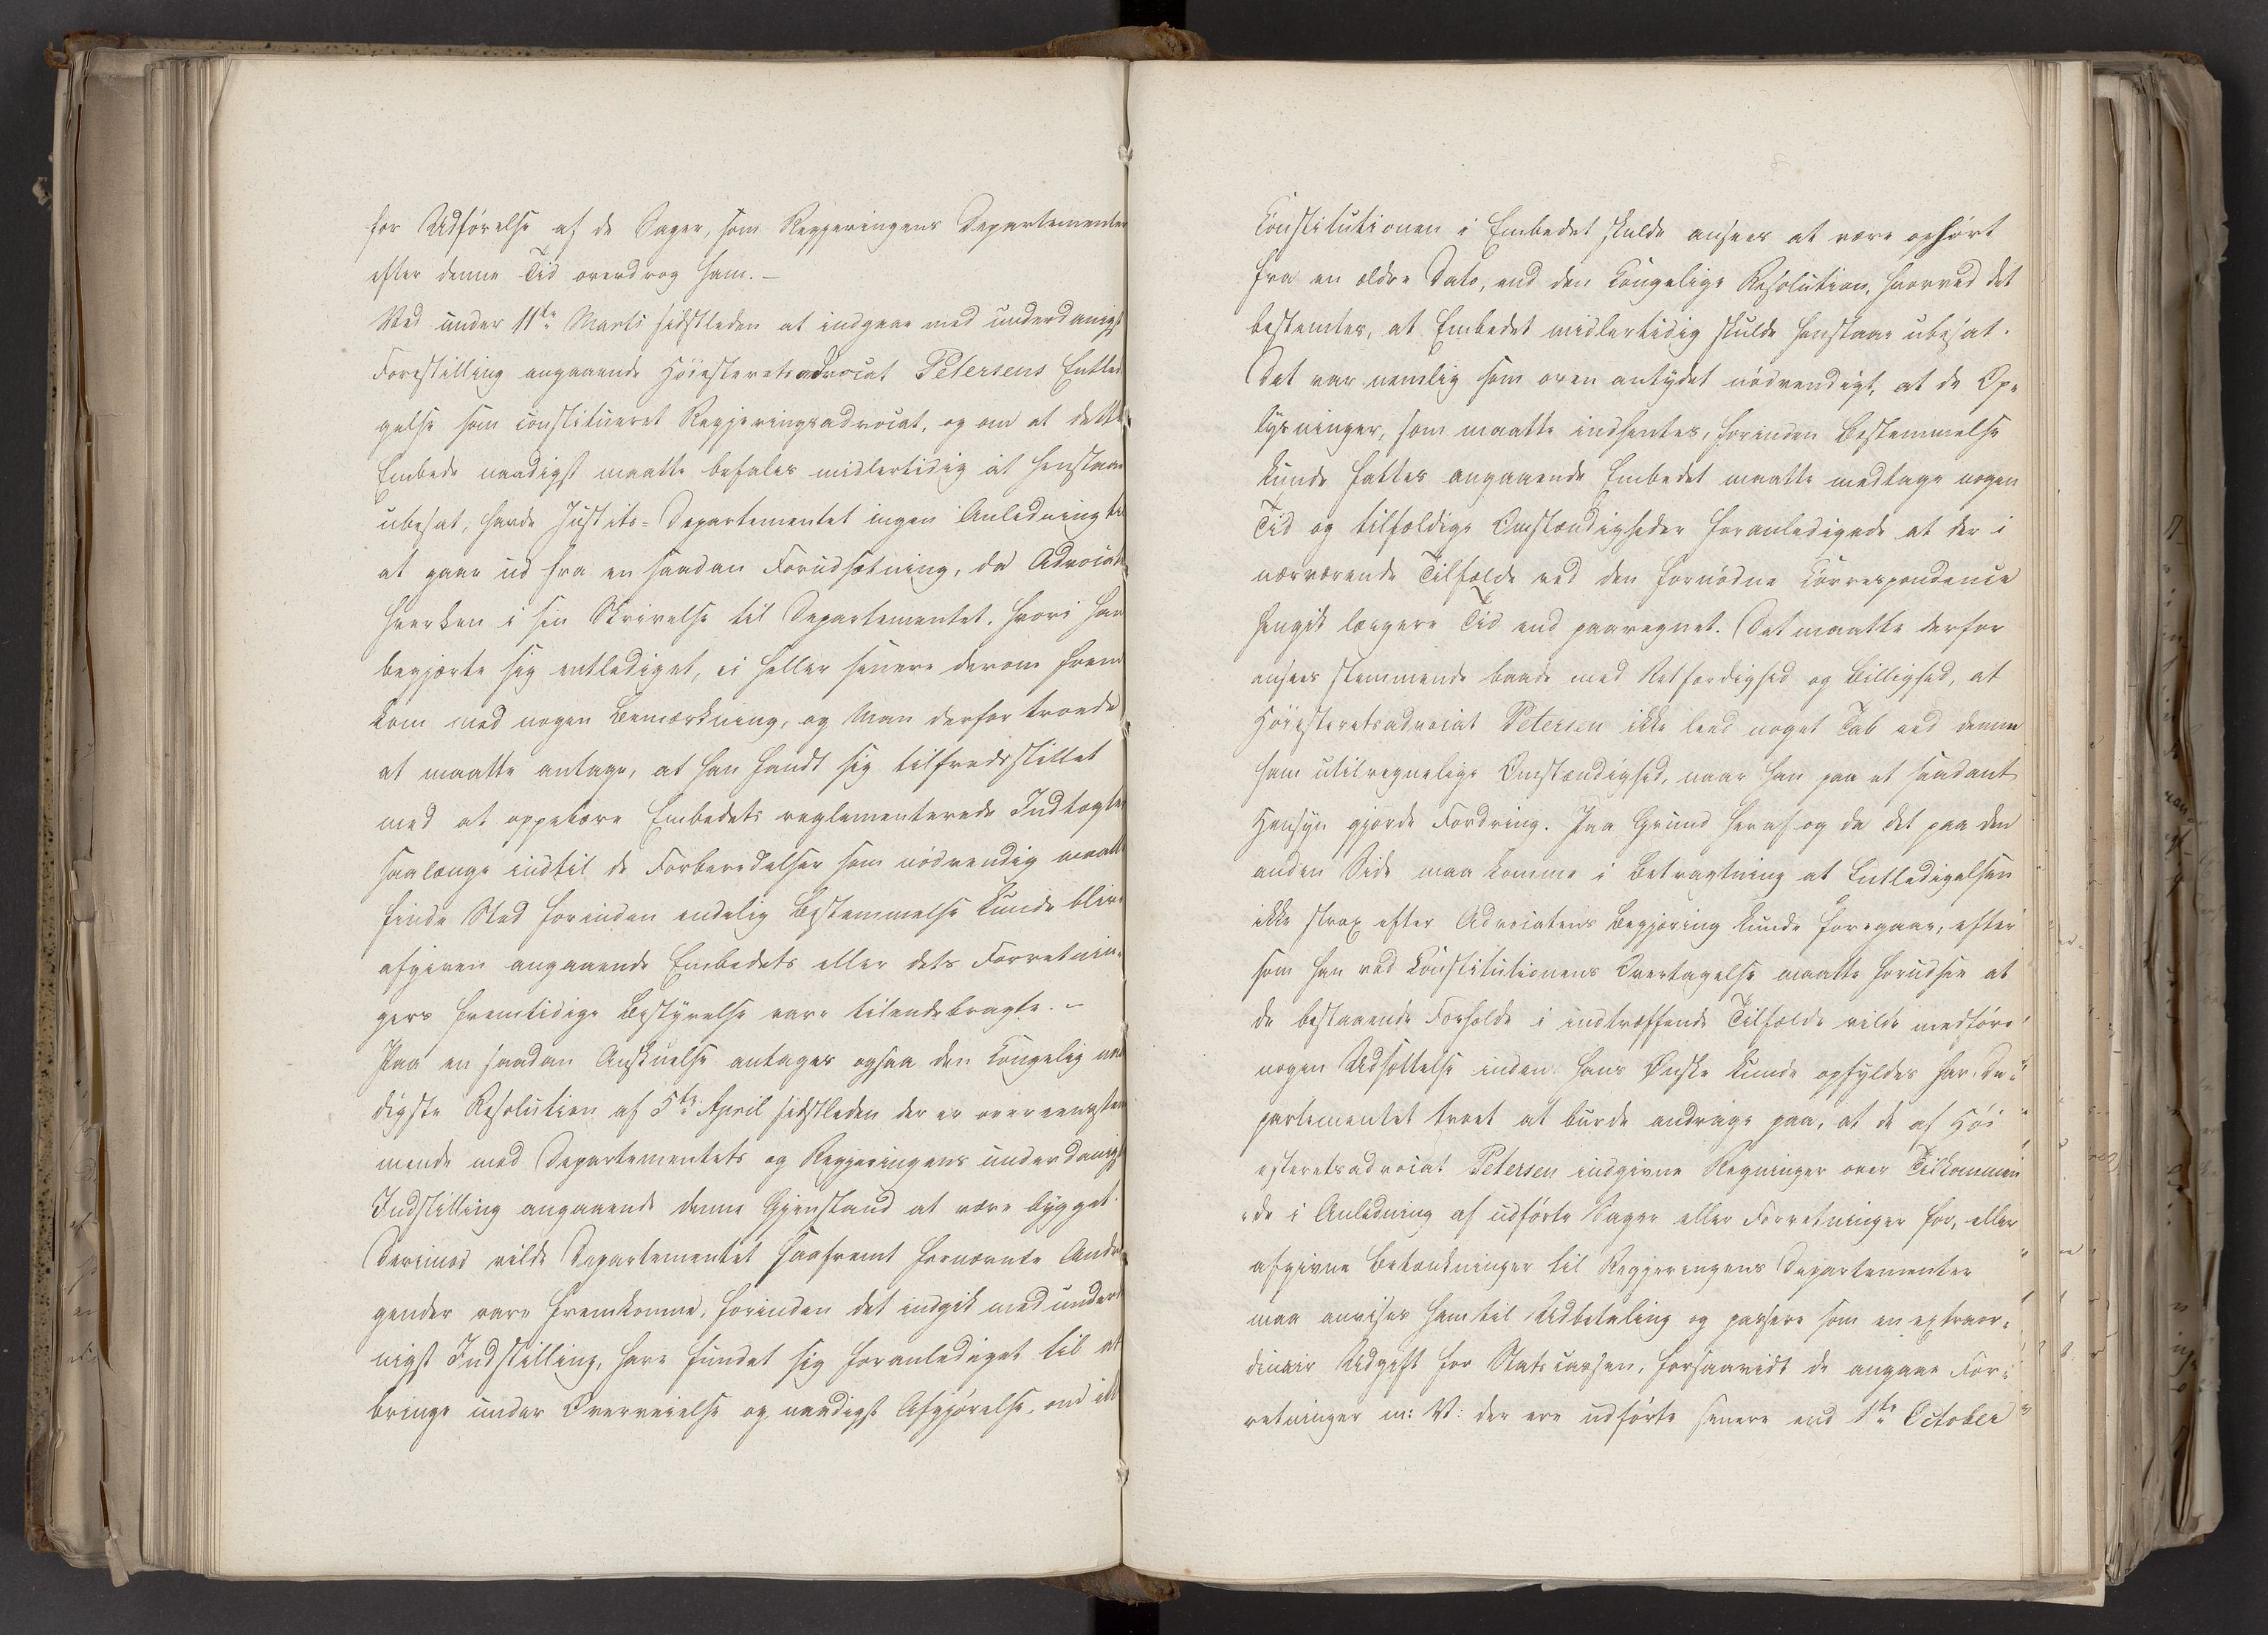 for Udførelse af de Sager, som Regjeringens Departementer
efter denne Tid overdrog ham. –
Ved under 11te Marts sidstleden at indgaae med underdanigst
Forestilling angaaende Höiesteretsadvocat Petersens Entledi
gelse som constitueret Regjeringsadvocat, og om at dette
Embede naadigst maatte befales midlertidig at henstaae
ubesat, havde Justits-Departementet ingen Anledning til
at gaae ud fra en saadan Forudsætning, da Advocaten
hverken i sin Skrivelse til Departementet, hvori han
begjærte sig entlediget, ei heller senere derom frem
kom med nogen Bemærkning, og Man derfor troede
at maatte antage, at han fandt sig tilfredsstillet
med at oppebære Embedets reglementerede Indtægter
saalænge indtil de Forberedelser som nödvendig maatte
finde Sted forinden endelig Bestemmelse kunde blive
afgiven angaaende Embedets eller dets Forretnin-
gers fremtidige Bestyrelse vare tilendebragte. –
Paa en saadan Anskuelse antages ogsaa den Kongelig naa
digste Resolution af 5te April sidstleden der er overeensstem
mende med Departementets og Regjeringens underdanigst
Indstilling angaaende denne Gjenstand at være bygget.
Derimod vilde Departementet saafremt fornævnte Andra
gender vare fremkomne, forinden det indgik med underda
nigst Indstilling, have fundet sig foranlediget til at
bringe under Overveielse og naadigst Afgjörelse, om ikke
Constitutionen i Embedet skulde ansees at være ophört
fra en ældre Dato, end den Kongelige Resolution, hvorved det
bestemtes, at Embedet midlertidig skulde henstaae ubesat.
Det var nemlig som oven antydet nödvendigt, at de Op-
lysninger, som maatte indhentes, forinden Bestemmelse
kunde fattes angaaende Embedet maatte medtage nogen
Tid og tilfældige Omstændigheder foranledigede at der i
nærværende Tilfælde ved den fornödne Correspondence
hengik længere Tid end paaregnet. Det maatte derfor
ansees stemmende baade med Retfærdighed og Billighed, at
Höiesteretsadvocat Petersen ikke leed noget Tab ved denne
ham utilregnelige Omstændighed, naar han paa et saadant
Hensyn gjorde Fordring. Paa Grund heraf og da det paa den
anden Side maa komme i Betragtning at Entledigelsen
ikke strax efter Advocatens Begjæring kunde foregaae, efter
som han ved Constitutionens Overtagelse maatte forudsee at
de bestaaende Forholde i indtræffende Tilfælde vilde medföre
nogen Udsættelse inden hans Ønske kunde opfyldes har De-
partementet troet at burde andrage paa, at de af Höi
esteretsadvocat Petersen indgivne Regninger over Tilkommen
de i Anledning af udförte Sager eller Forretninger for, eller
afgivne Betænkninger til Regjeringens Departementer
maa anvises ham til Udbetaling og passere som en extraor-
dinair Udgift for Statscassen, forsaavidt de angaae For-
retninger m: V: der ere udförte senere end 1te October